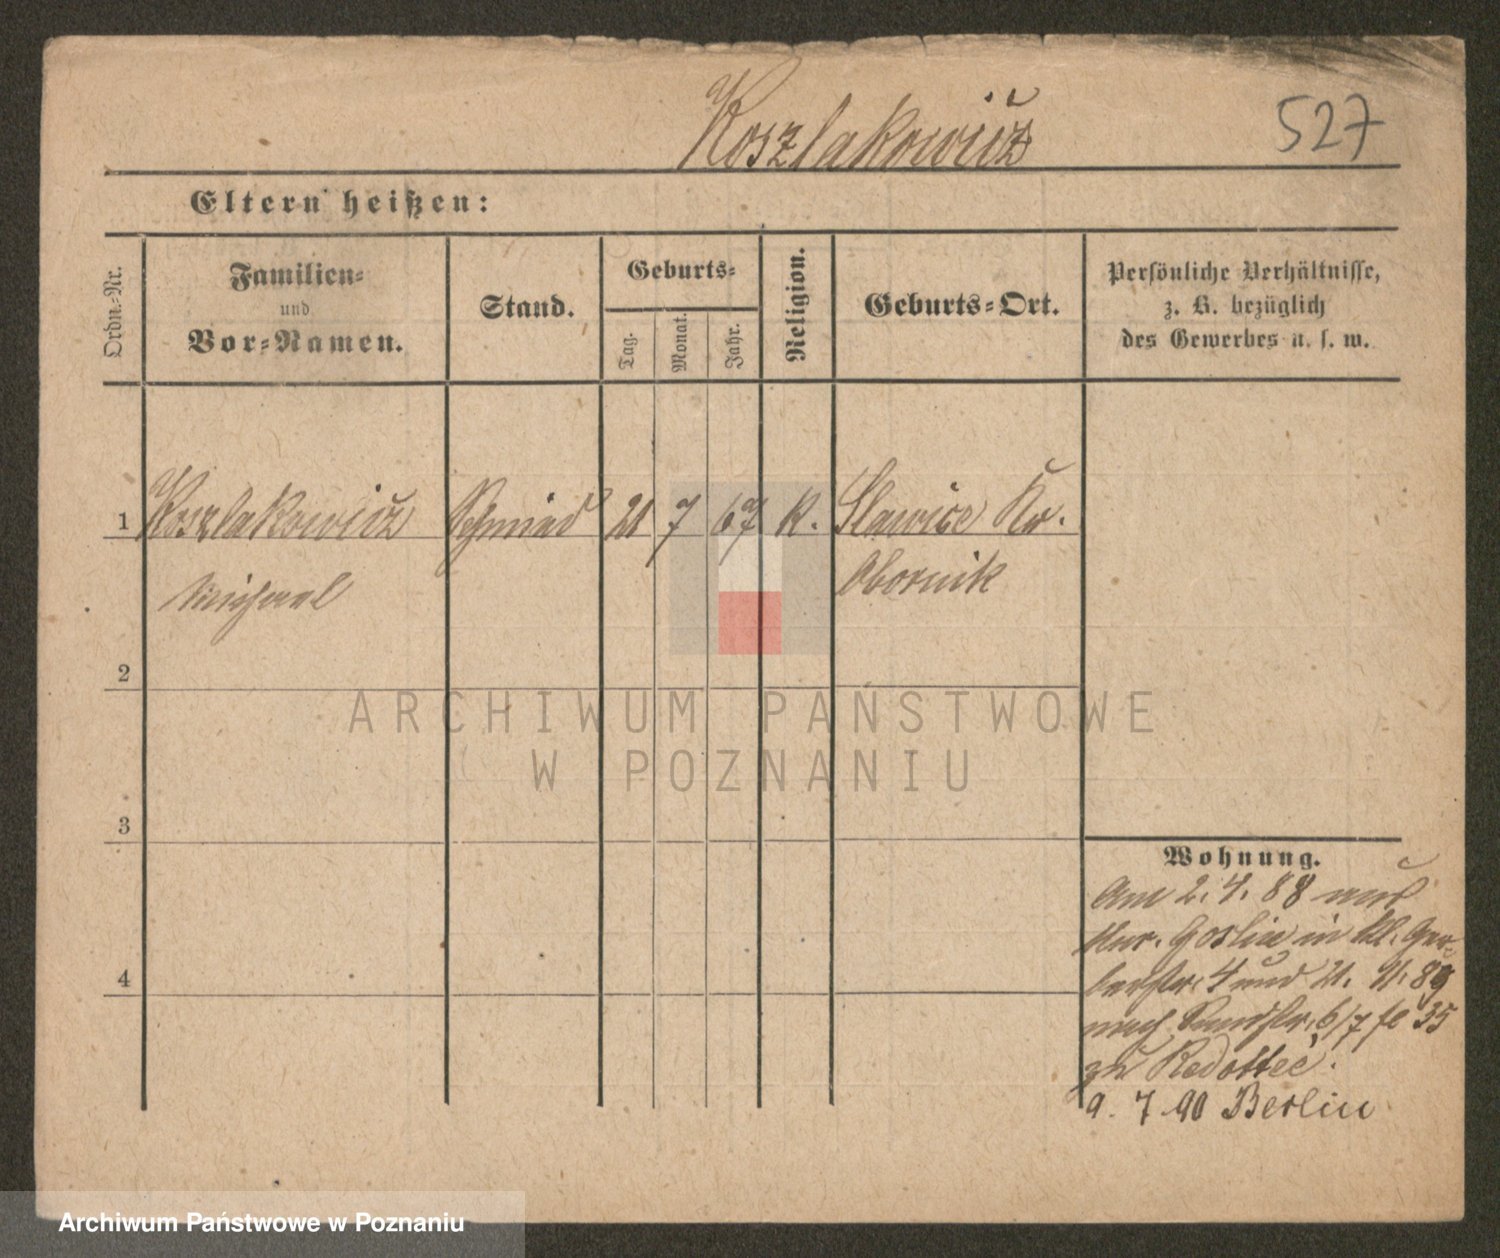 Koszlakowicz
527
Eltern heißen:
Ordn.-Nr.
Familien-
und
Vor-Namen.
Stand.
Geburts-
Tag.
Monat.
Jahr.
Religion.
Geburts-Ort.
Persönliche Verhältnisse,
z. B. bezüglich
des Gewerbes u. s. w.
1 Koszlakowicz Schmied 21 7 67 K. Slawice Kr.
Michael Obornik
2
3
4
Wohnung.
Am 2. 4. 88 aus
Mur. Goslin in Kl. Ger-
berstr. 4 und 21. 11. 89
nach 6/7 35
zu
9. 7. 90 Berlin
ARCHIWUM PAŃSTWOWE
W POZNANIU
Archiwum Państwowe w Poznaniu